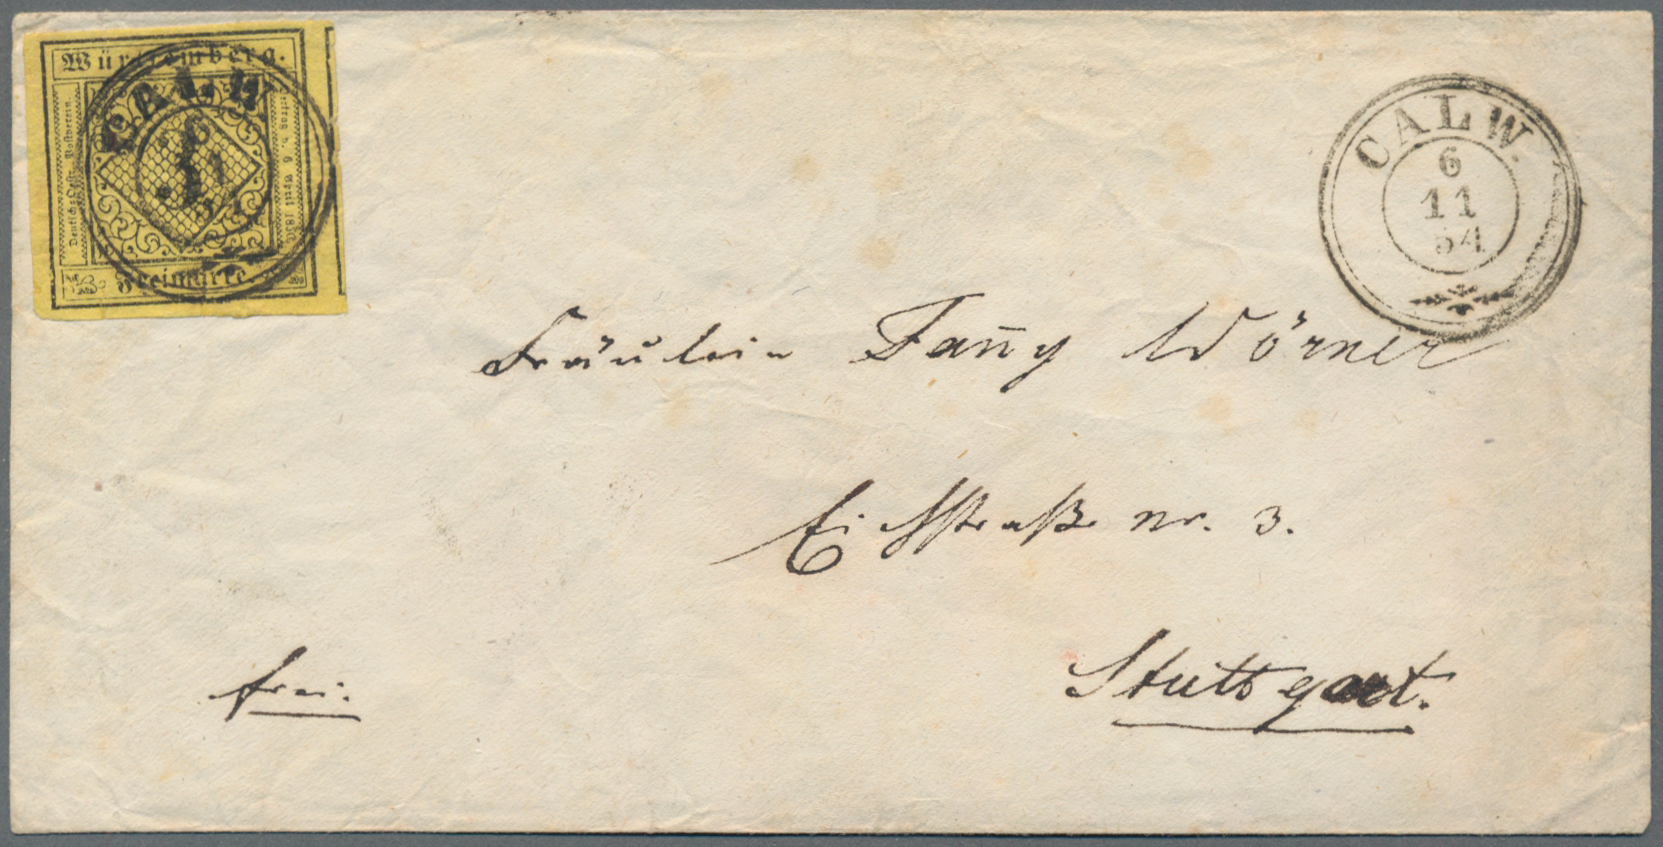 Württemberg.
Deutsch-Oestr. Postverein.
Vertrag v. 6. April 1850.
Freimarke.
3
CALW
CALW.
6
11
54
Fräulein Fañy Wörner
Eichstraße nr. 3.
frei.
Stuttgart.